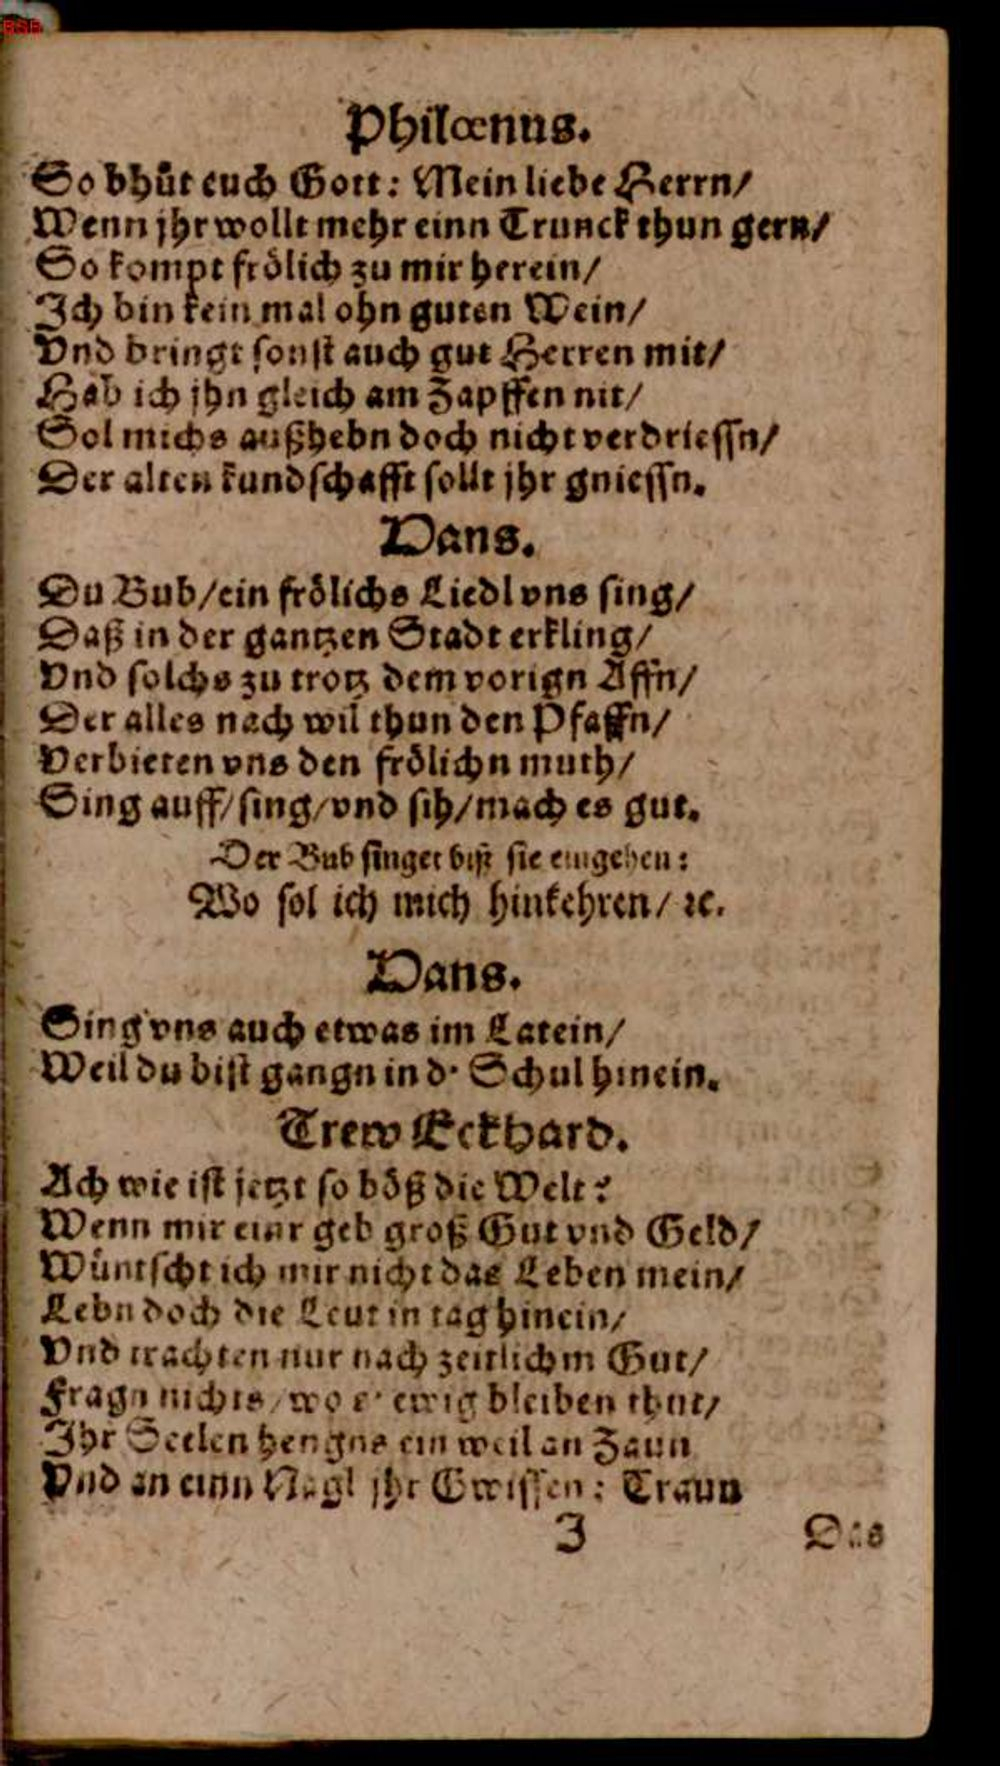 BSB
Philœnus.
So bhüt euch Gott: Mein liebe Herrn/
Wenn jhr wollt mehr einn Trunck thun gern/
So kompt frölich zu mir herein/
Ich bin kein mal ohn guten Wein/
Vnd bringt sonst auch gut Herren mit/
Hab ich jhn gleich am Zapffen nit/
Sol michs außhebn doch nicht verdriessn/
Der alten kundschafft sollt jhr gniessn.
Dans.
Du Bub/ein frölichs Liedl vns sing/
Daß in der gantzen Stadt erkling/
Vnd solchs zu trotz dem vorign Affn/
Der alles nach wil thun den Pfaffn/
Verbieten vns den frölichn muth/
Sing auff/sing/vnd sih/mach es gut.
Der Bub singet biß sie eingehen:
Wo sol ich mich hinkehren/ ꝛc.
Dans.
Sing vns auch etwas im Latein/
Weil du bist gangn in d' Schul hinein.
Trew Eckhard.
Ach wie ist jetzt so böß die Welt:
Wenn mir einr geb groß Gut vnd Geld/
Wüntscht ich mir nicht das Leben mein/
Lebn doch die Leut in tag hinein/
Vnd trachten nur nach zeitlichm Gut/
Fragn nichts/wo s' ewig bleiben thut/
Ihr Seelen hengns ein weil an Zaun
Vnd an einn Nagl jhr Gwissen: Traun
J Das